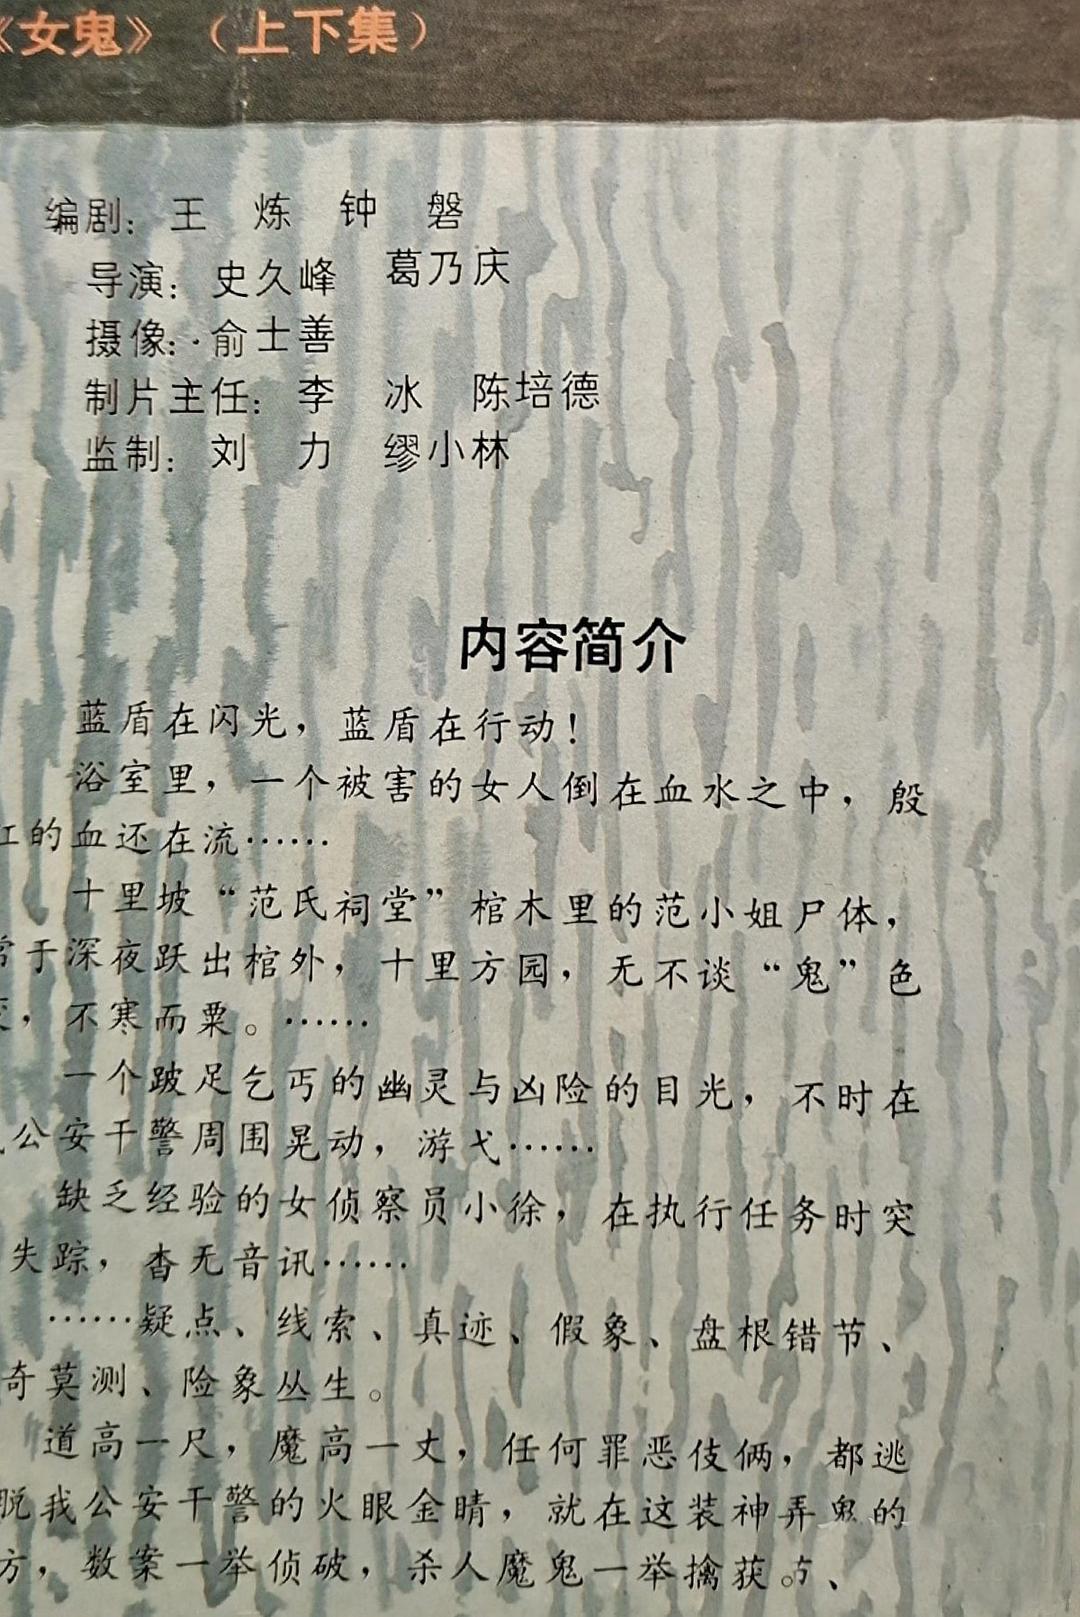 《女鬼》（上下集）
编剧：王 炼 钟 磐
导演：史久峰 葛乃庆
摄像：·俞士善
制片主任：李 冰 陈培德
监制：刘 力 缪小林
内容简介
蓝盾在闪光，蓝盾在行动！
浴室里，一个被害的女人倒在血水之中，殷
红的血还在流……
十里坡“范氏祠堂”棺木里的范小姐尸体，
常于深夜跃出棺外，十里方园，无不谈“鬼”色
变，不寒而粟。……
一个跛足乞丐的幽灵与凶险的目光，不时在
公安干警周围晃动，游弋……
缺乏经验的女侦察员小徐，在执行任务时突
失踪，杳无音讯……
……疑点、线索、真迹、假象、盘根错节、
奇莫测、险象丛生。
道高一尺，魔高一丈，任何罪恶伎俩，都逃
脱我公安干警的火眼金睛，就在这装神弄鬼的
方，数案一举侦破，杀人魔鬼一举擒获。方、